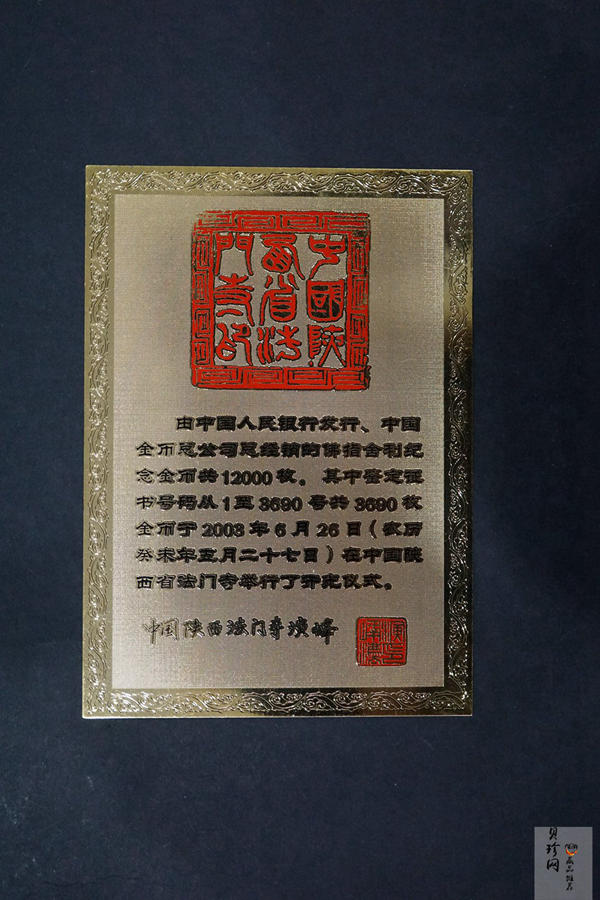 中國陝
西省法
門寺印
由中国人民银行发行、中国
金币总公司总经销的佛指舍利纪
念金币共12000枚。其中鉴定证
书号码从1至3690号共3690枚
金币于2003年6月26日（农历
癸未年五月二十七日）在中国陕
西省法门寺举行了开光仪式。
中国陕西法门寺
贝珍网
藏品推荐